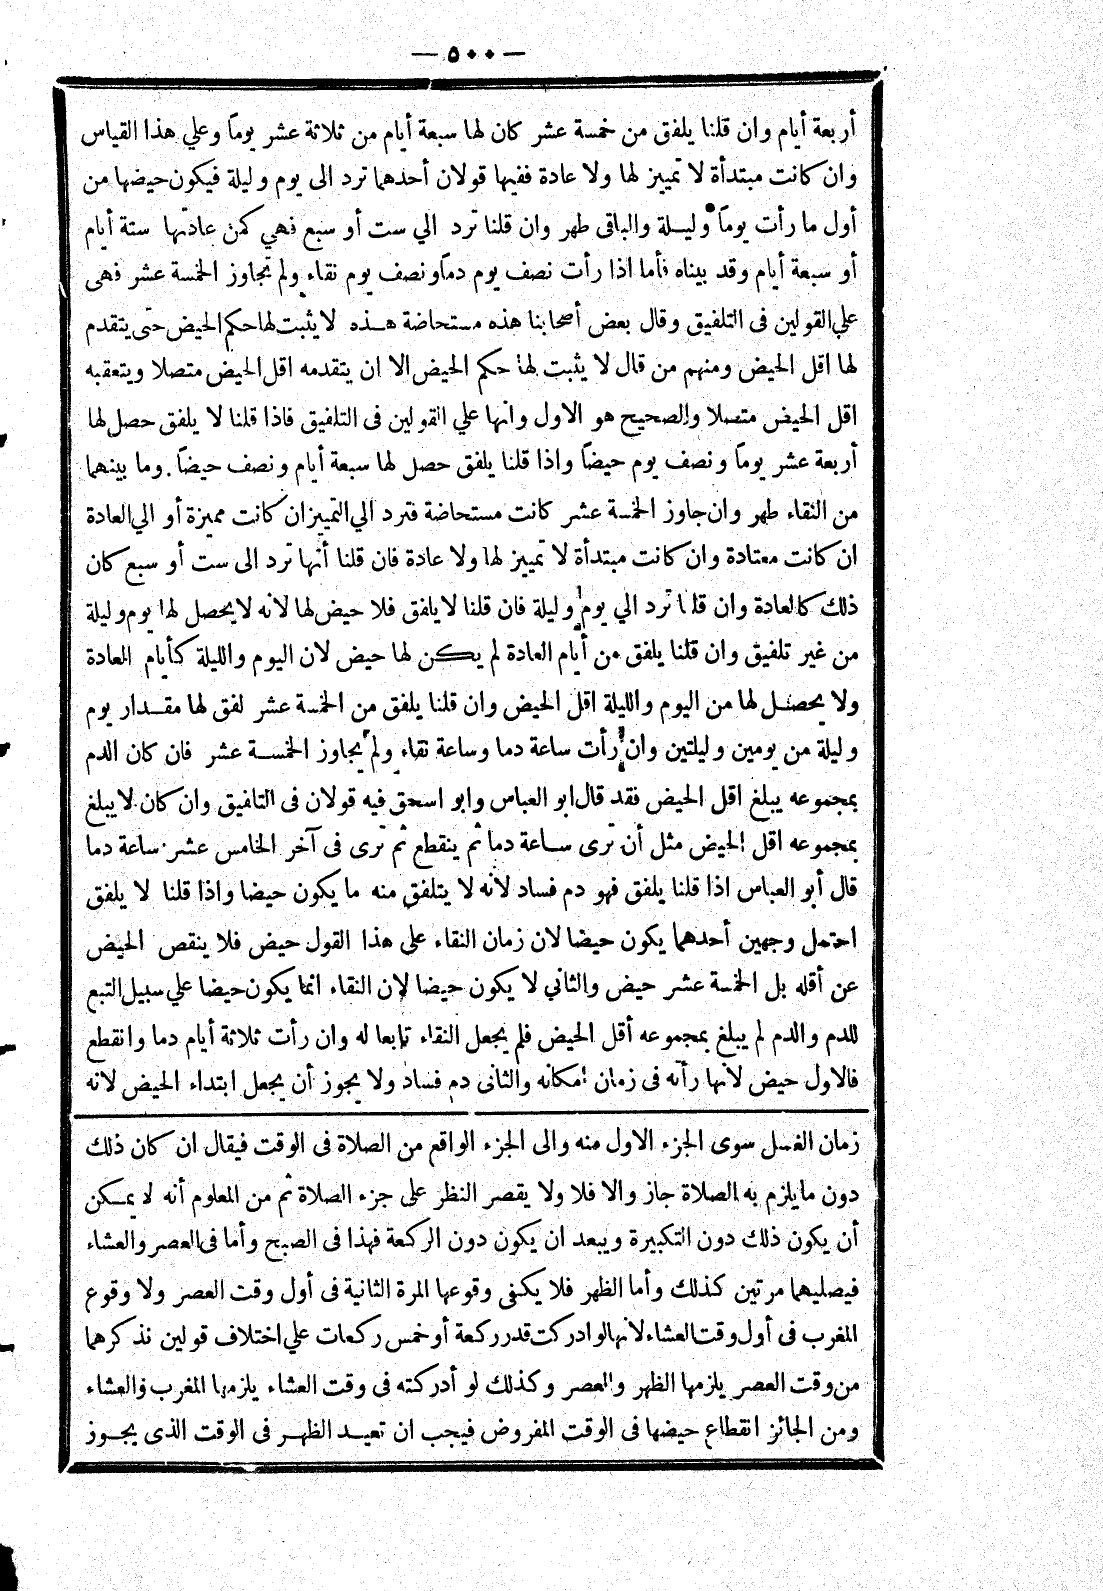 — ٥٠٠ —
أربعة أيام وان قلنا يلفق من خمسة عشر كان لها سبعة أيام من ثلاثة عشر يوماً وعلي هذا القياس
وان كانت مبتدأة لا تمييز لها ولا عادة ففيها قولان أحدهما ترد الى يوم وليلة فيكون حيضها من
أول ما رأت يوماً وليلة والباقى طهر وان قلنا ترد الي ست أو سبع فهي كمن عادتها ستة أيام
أو سبعة أيام وقد بيناه فأما اذا رأت نصف يوم دماً ونصف يوم نقاء ولم تجاوز الخمسة عشر فهى
علي القولين فى التلفيق وقال بعض أصحابنا هذه مستحاضة هذه لا يثبت لها حكم الحيض حتى يتقدم
لها اقل الحيض ومنهم من قال لا يثبت لها حكم الحيض الا ان يتقدمه اقل الحيض متصلا ويتعقبه
اقل الحيض متصلا والصحيح هو الاول وانها علي القولين فى التلفيق فاذا قلنا لا يلفق حصل لها
أربعة عشر يوماً ونصف يوم حيضاً واذا قلنا يلفق حصل لها سبعة أيام ونصف حيضاً وما بينهما
من النقاء طهر وان جاوز الخمسة عشر كانت مستحاضة فترد الي التمييز ان كانت مميزة أو الي العادة
ان كانت معتادة وان كانت مبتدأة لا تمييز لها ولا عادة فان قلنا أنها ترد الى ست أو سبع كان
ذلك كالعادة وان قلنا ترد الي يوم وليلة فان قلنا لا يلفق فلا حيض لها لانه لا يحصل لها يوم وليلة
من غير تلفيق وان قلنا يلفق من أيام العادة لم يكن لها حيض لان اليوم والليلة كأيام العادة
ولا يحصل لها من اليوم والليلة اقل الحيض وان قلنا يلفق من الخمسة عشر لفق لها مقدار يوم
وليلة من يومين وليلتين وان رأت ساعة دما وساعة نقاء ولم يجاوز الخمسة عشر فان كان الدم
بمجموعه يبلغ اقل الحيض فقد قال ابو العباس وابو اسحق فيه قولان فى التلفيق وان كان لا يبلغ
بمجموعه اقل الحيض مثل أن ترى ساعة دما ثم ينقطع ثم ترى فى آخر الخامس عشر ساعة دما
قال أبو العباس اذا قلنا يلفق فهو دم فساد لانه لا يتلفق منه ما يكون حيضا واذا قلنا لا يلفق
احتمل وجهين أحدهما يكون حيضا لان زمان النقاء على هذا القول حيض فلا ينقص الحيض
عن أقله بل الخمسة عشر حيض والثاني لا يكون حيضا لان النقاء انما يكون حيضا علي سبيل التبع
للدم والدم لم يبلغ بمجموعه أقل الحيض فلم يجعل النقاء تابعا له وان رأت ثلاثة أيام دما وانقطع
فالاول حيض لانها رأته فى زمان امكانه والثانى دم فساد ولا يجوز أن يجعل ابتداء الحيض لانه
زمان الغسل سوى الجزء الاول منه والى الجزء الواقع من الصلاة فى الوقت فيقال ان كان ذلك
دون ما يلزم به الصلاة جاز والا فلا ولا يقصر النظر على جزء الصلاة ثم من المعلوم أنه لا يمكن
أن يكون ذلك دون التكبيرة ويبعد ان يكون دون الركعة فهذا فى الصبح وأما فى العصر والعشاء
فيصليهما مرتين كذلك وأما الظهر فلا يكفى وقوعها المرة الثانية فى أول وقت العصر ولا وقوع
المغرب فى أول وقت العشاء لانها لو ادركت قدر ركعة أو خمس ركعات علي اختلاف قولين نذكرهما
من وقت العصر يلزمها الظهر والعصر وكذلك لو أدركته فى وقت العشاء يلزمها المغرب والعشاء
ومن الجائز انقطاع حيضها فى الوقت المفروض فيجب ان تعيد الظهر فى الوقت الذى يجوز